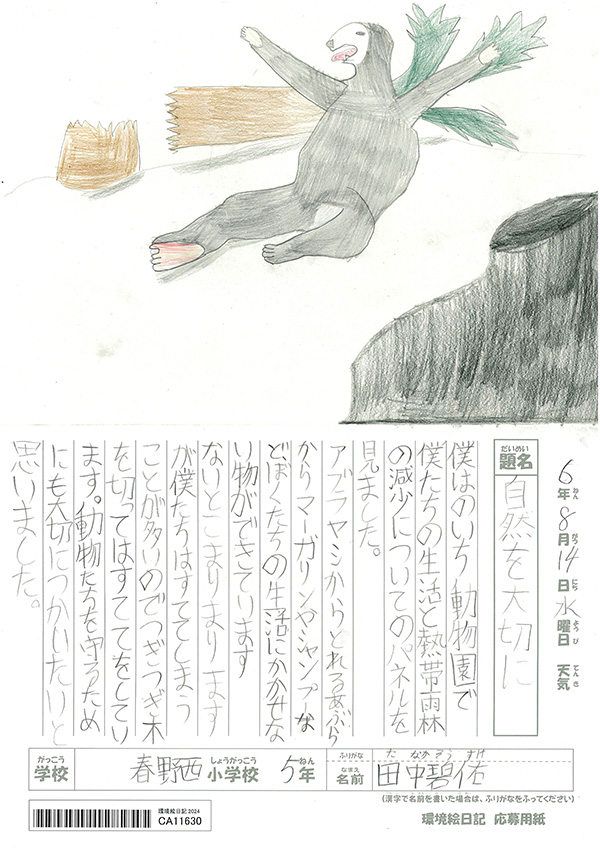 6年8月14日水曜日 天気
ねん がつ にち ようび てんき
だいめい
題名
自然を大切に
僕はのいち動物園で
僕たちの生活と熱帯雨林
の減少についてのパネルを
見ました。
アブラヤシからとれるあぶら
からマーガリンやシャンプーな
どぼくたちの生活にかかせな
い物ができています
ないとこまりまります
が僕たちはすててしまう
ことが多いのでつぎつぎ木
を切ってはすててをしてい
ます。動物たちを守るため
にも大切につかいたいと
思いました。
がっこう
学校
春野西小学校 5年
しょうがっこう ねん
ふりがな
たなかそうすけ
なまえ
名前
田中碧佑
(漢字で名前を書いた場合は、ふりがなをふってください)
環境絵日記2024
CA11630
環境絵日記 応募用紙